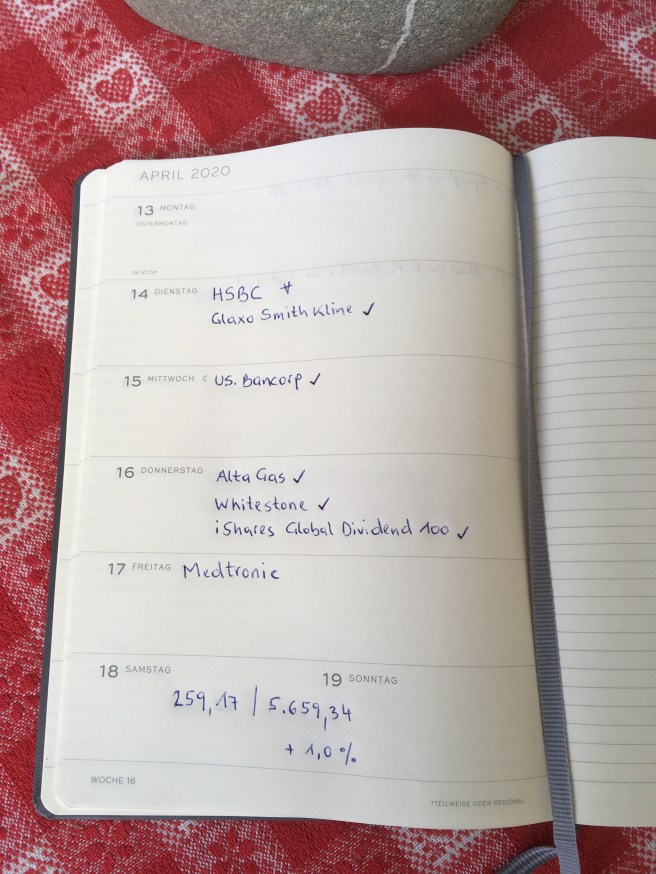 APRIL 2020
13 MONTAG
OSTERMONTAG
14 DIENSTAG HSBC
Glaxo Smith Kline ✓
15 MITTWOCH ☾ US. Bancorp ✓
16 DONNERSTAG Alta Gas ✓
Whitestone ✓
iShares Global Dividend 100 ✓
17 FREITAG Medtronic
18 SAMSTAG
19 SONNTAG
259,17 | 5.659,34
+ 1,0 %
WOCHE 16
*TEILWEISE ODER REGIONAL